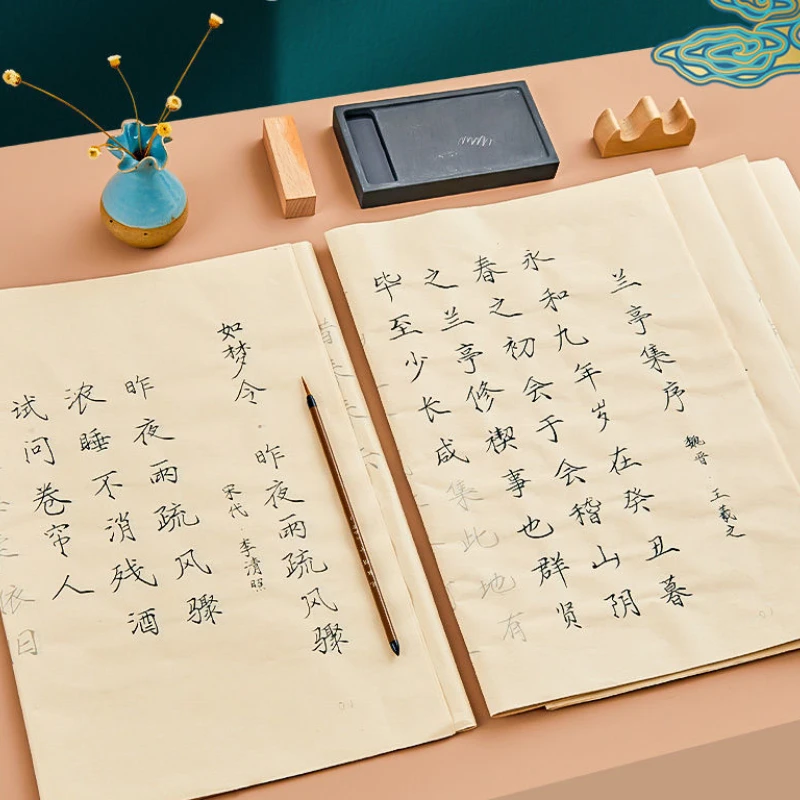 兰亭集序
魏晋·王羲之
永和九年岁在癸丑暮
春之初会于会稽山阴
之兰亭修禊事也群贤
毕至少长咸集此地有
如梦令·昨夜雨疏风骤
宋代·李清照
昨夜雨疏风骤
浓睡不消残酒
试问卷帘人
依旧